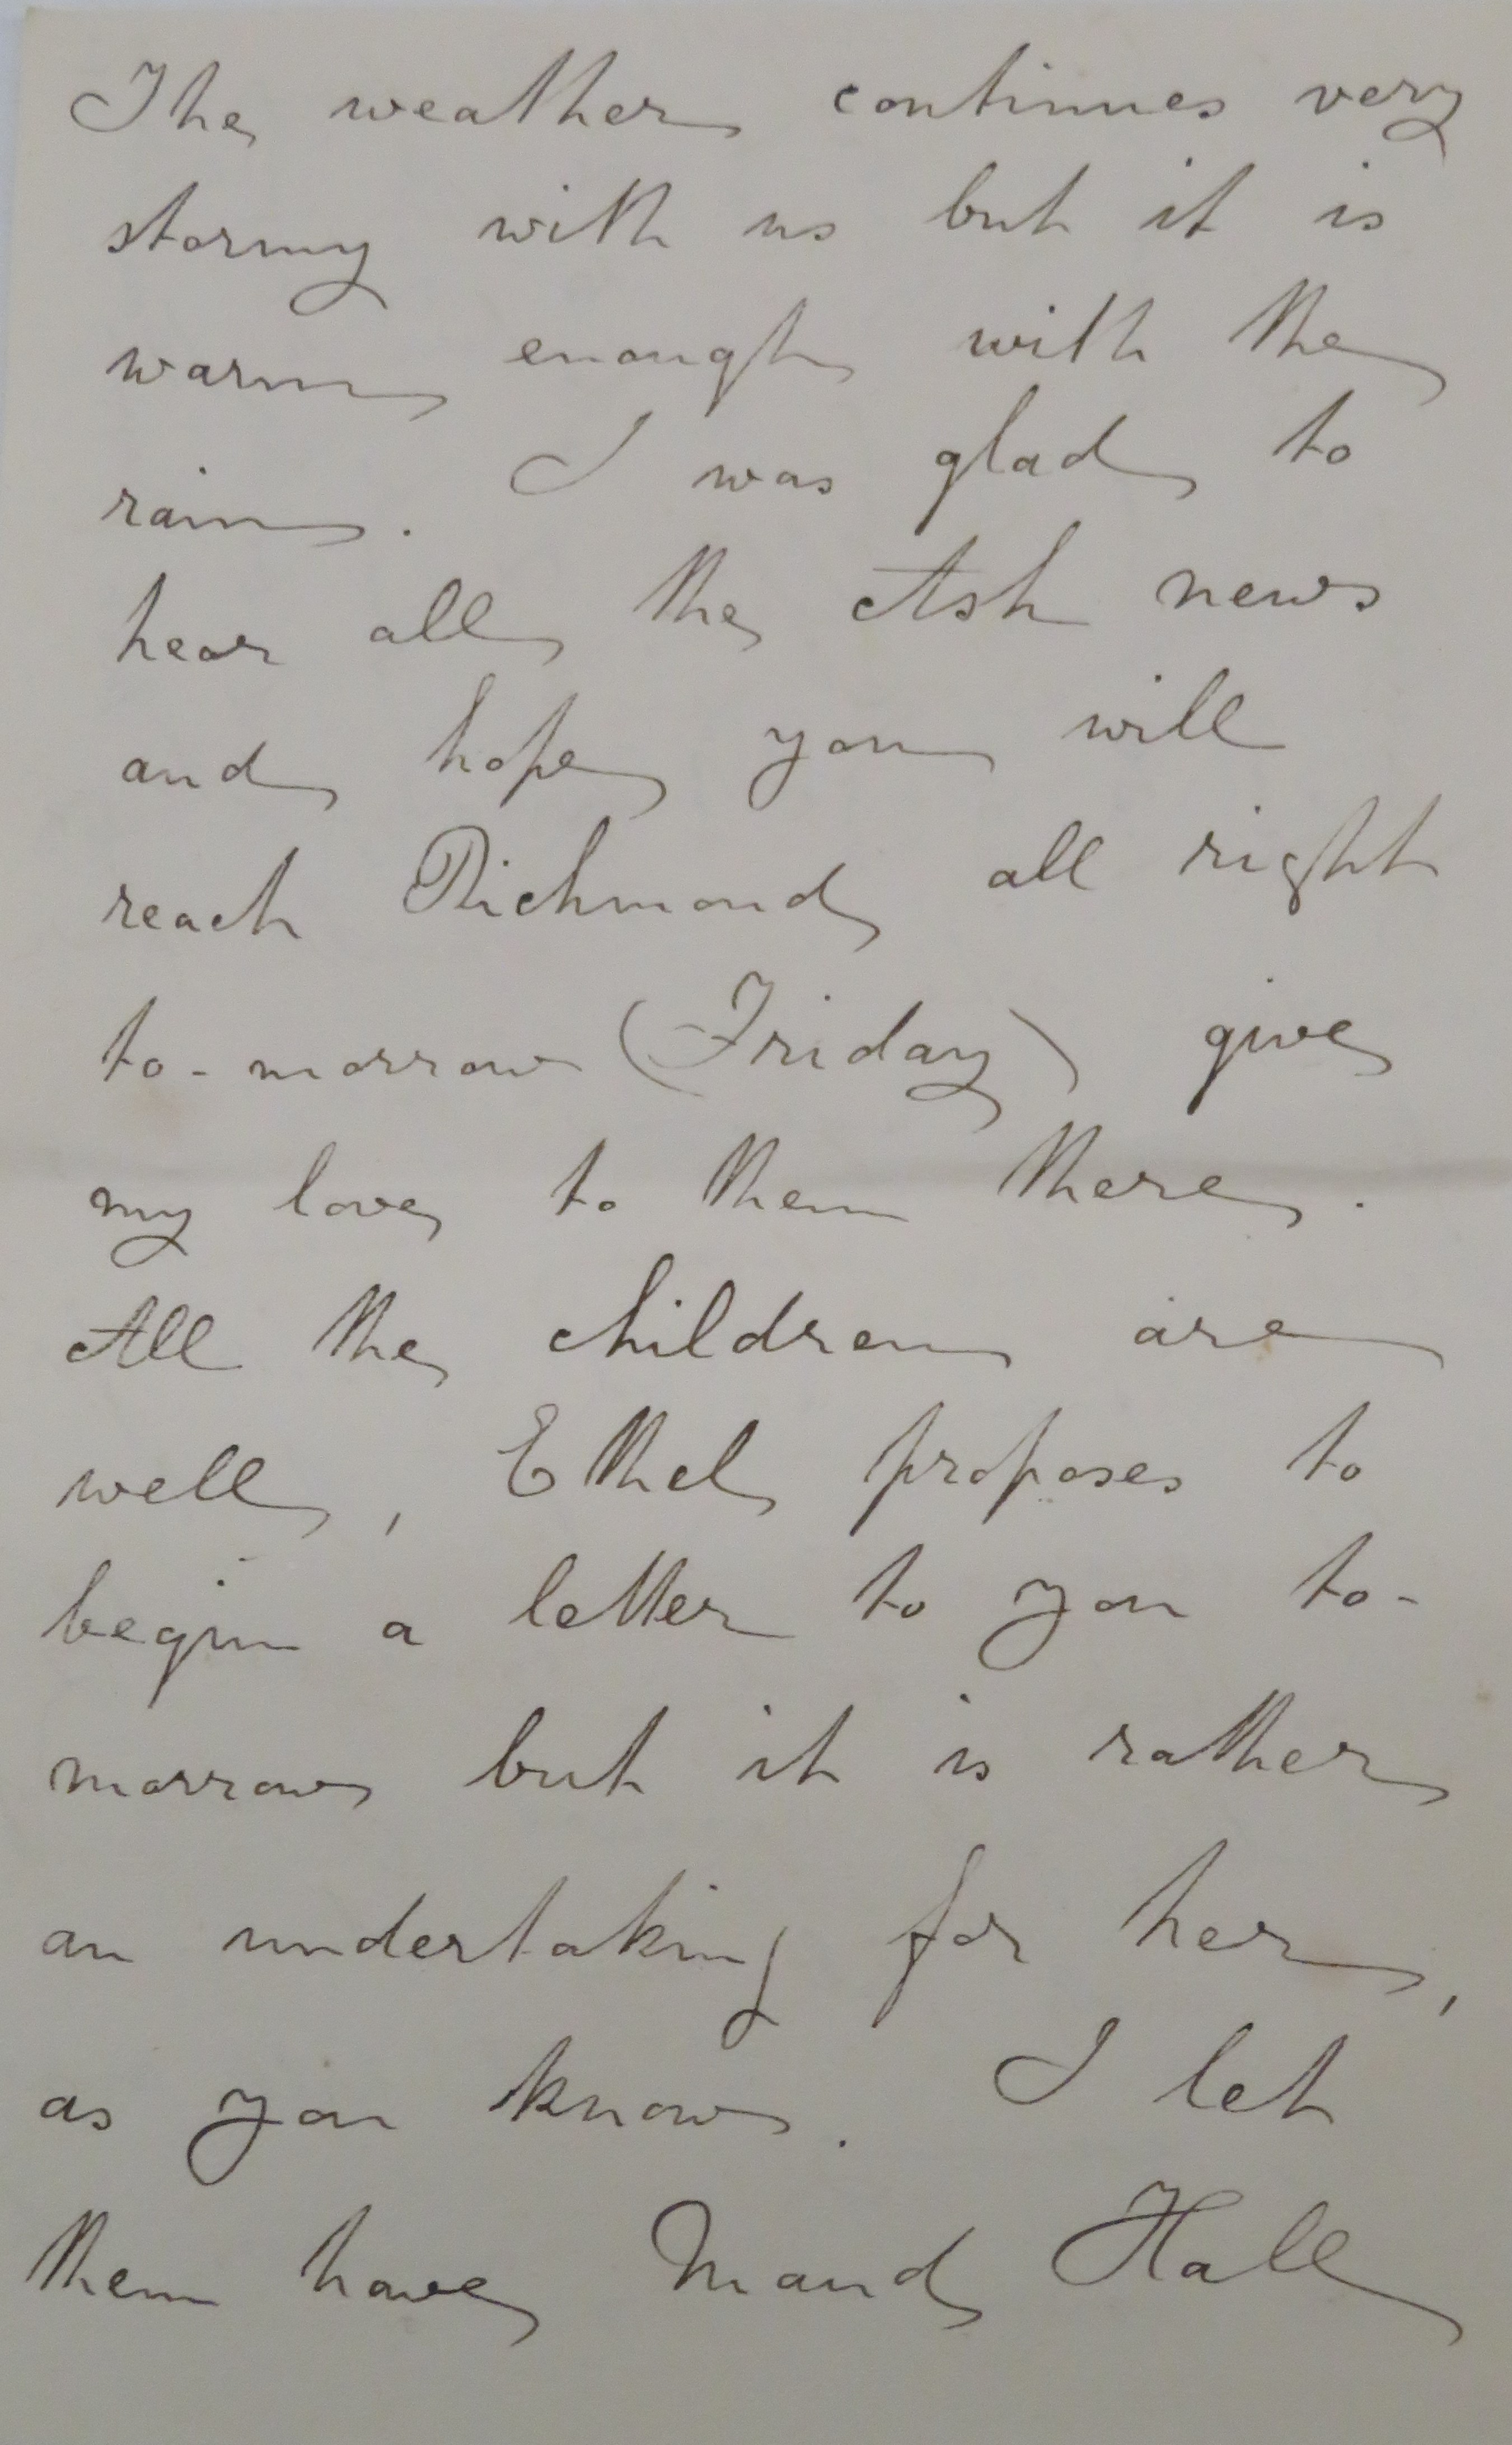 The weather continues very
stormy with us but it is
warm enough with the
rain. I was glad to
hear all the Ash news
and hope you will
reach Richmond all right
to-morrow (Friday) give
my love to them there.
All the children are
well, Ethel proposes to
begin a letter to you to-
morrow but it is rather
an undertaking for her,
as you know. I let
them have Maud Hall